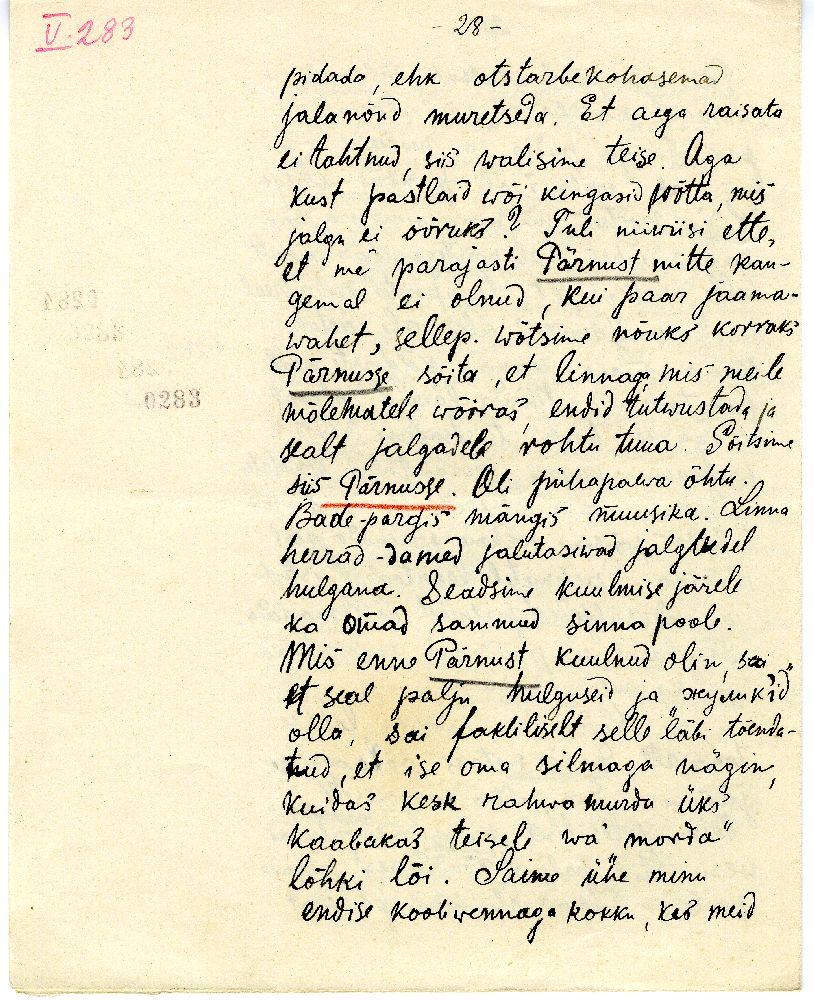 V. 283
- 28 -
pidada, ehk otstarbekohasemad
jalanõud muretseda. Et aega raisata
ei tahtnud, siis walisime teise. Aga
kust pastlaid wõi kingasid wõtta, mis
jalgu ei õõruks? Tuli niiwiisi ette,
et me parajasti Pärnust mitte kau-
gemal ei olnud, kui paar jaama-
wahet, sellep. wõtsime nõuks korraks
Pärnusse sõita, et linnaga, mis meile
mõlematele wõõras, endid tutwustada ja
sealt jalgadele rohtu tuua. Sõitsime
siis Pärnusse. Oli pühapäewa õhtu.
Bade-pargis mängis muusika. Linna
herrad-damed jalutasiwad jalgteedel
hulgana. Seadsime kuulmise järele
ka omad sammud sinna poole.
Mis enne Pärnust kuulnud olin,
et seal palju hulguseid ja „жулик'id"
olla, sai faktiliselt selle läbi tõenda-
tud, et ise oma silmaga nägin,
kuidas kesk rahwa murdu üks
kaabakas teisele „wa morda"
lõhki lõi. Saime ühe minu
endise kooliwennaga kokku, kes meid
1284
284
0283